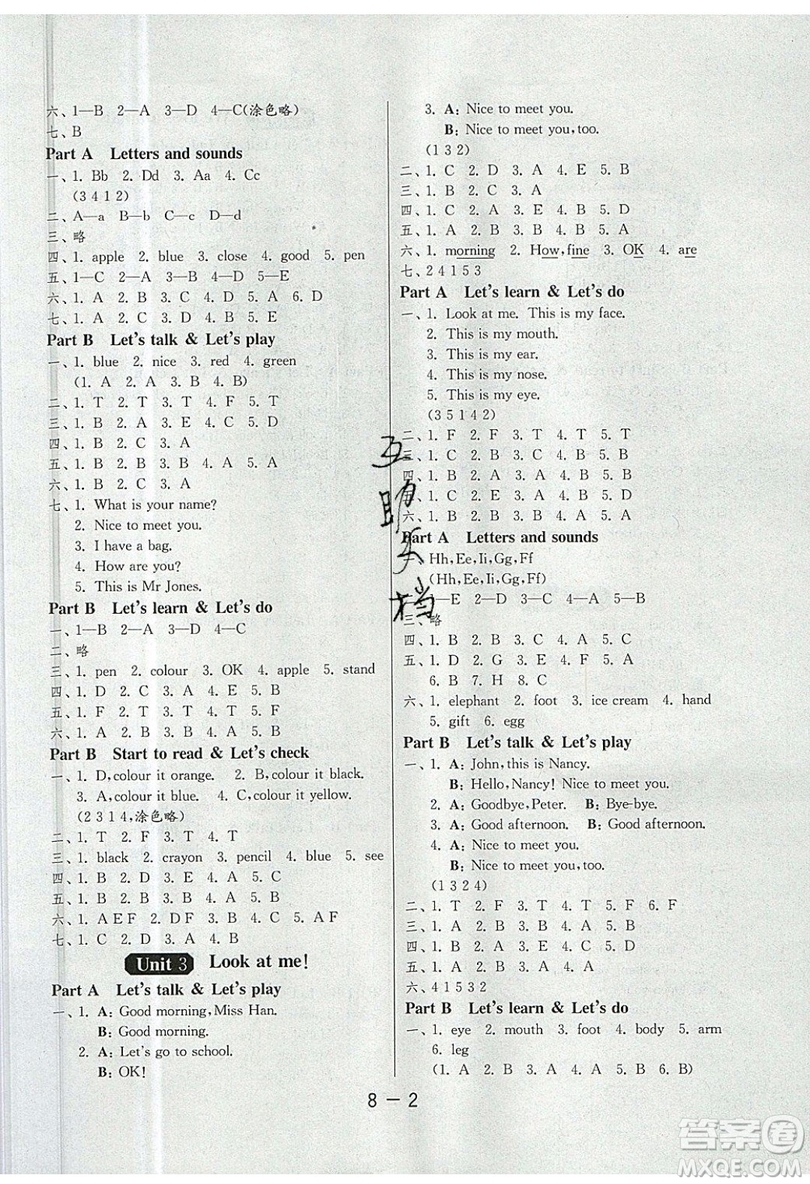 六、1—B 2—A 3—D 4—C(涂色略)
七、B
Part A Letters and sounds
一、1. Bb 2. Dd 3. Aa 4. Cc
(3 4 1 2)
二、A—a B—b C—c D—d
三、略
四、1. apple 2. blue 3. close 4. good 5. pen
五、1—C 2—A 3—D 4—B 5—E
六、1. A 2. B 3. C 4. D 5. A 6. D
七、1. A 2. D 3. C 4. B 5. E
Part B Let's talk & Let's play
一、1. blue 2. nice 3. red 4. green
(1. A 2. B 3. A 4. B)
二、1. T 2. T 3. T 4. F 5. T
三、1. D 2. B 3. A 3. E 4. C
四、1. B 2. C 3. A
五、1. B 2. A 3. B 4. B 5. A
六、1. B 2. C 3. A
七、1. What is your name?
2. Nice to meet you.
3. I have a bag.
4. How are you?
5. This is Mr Jones.
Part B Let's learn & Let's do
一、1—B 2—A 3—D 4—C
二、略
三、1. pen 2. colour 3. OK 4. apple 5. stand
四、1. D 2. C 3. A 4. E 5. B
五、1. F 2. T 3. F 4. T
六、1. A 2. D 3. C 4. B
Part B Start to read & Let's check
一、1. D,colour it orange. 2. B,colour it black.
3. A,colour it blue. 4. C,colour it yellow.
(2 3 1 4,涂色略)
二、1. T 2. F 3. T 4. T
三、1. black 2. crayon 3. pencil 4. blue 5. see
四、1. A 2. A 3. B 4. B 5. C
五、1. B 2. B 3. A 4. B 5. C
六、1. A E F 2. D F 3. C 4. B 5. A F
七、1. C 2. D 3. A 4. B
Unit 3 Look at me!
Part A Let's talk & Let's play
一、1. A: Good morning,Miss Han.
B: Good morning.
2. A: Let's go to school.
B: OK!
3. A: Nice to meet you.
B: Nice to meet you,too.
(1 3 2)
二、1. C 2. D 3. A 4. E 5. B
三、1. B 2. C 3. A
四、1. C 2. B 3. C 4. B 5. B
五、1. A 2. B 3. B 4. B 5. A
六、1. morning 2. How,fine 3. OK 4. are
七、2 4 1 5 3
Part A Let's learn & Let's do
一、1. Look at me. This is my face.
2. This is my mouth.
3. This is my ear.
4. This is my nose.
5. This is my eye.
(3 5 1 4 2)
二、1. F 2. F 3. T 4. T 5. T
三、1. B 2. A 3. B 4. A 5. A
四、1. B 2. A 3. C 4. B 5. A
1. C 2. E 3. D 4. B 5. A
六、1. B 2. B 3. B 4. A 5. B
Part A Letters and sounds
一、Hh,Ee,Ii,Gg,Ff
(Hh,Ee,Ii,Gg,Ff)
1—E 2—D 3—C 4—A 5—B
三、略
四、1. B 2. B 3. C 4. B 5. C
五、1. G 2. D 3. C 4. F 5. E
6. B 7. H 8. C 9. A
六、1. elephant 2. foot 3. ice cream 4. hand
5. gift 6. egg
Part B Let's talk & Let's play
一、1. A: John,this is Nancy.
B: Hello,Nancy! Nice to meet you.
2. A: Goodbye,Peter. B: Bye-bye.
3. A: Good afternoon. B: Good afternoon.
4. A: Nice to meet you.
B: Nice to meet you,too.
(1 3 2 4)
二、1. T 2. F 3. T 4. T 5. F 6. F
三、1. A 2. B 3. B 4. A 5. A
四、1. B 2. B 3. B 4. A 5. B
五、1. A 2. D 3. C 4. E 5. B
六、4 1 5 3 2
Part B Let's learn & Let's do
一、1. eye 2. mouth 3. foot 4. body 5. arm
6. leg
(1. A 2. A 3. A 4. B 5. B 6. B)
8 — 2
答案圈
MXQE.COM